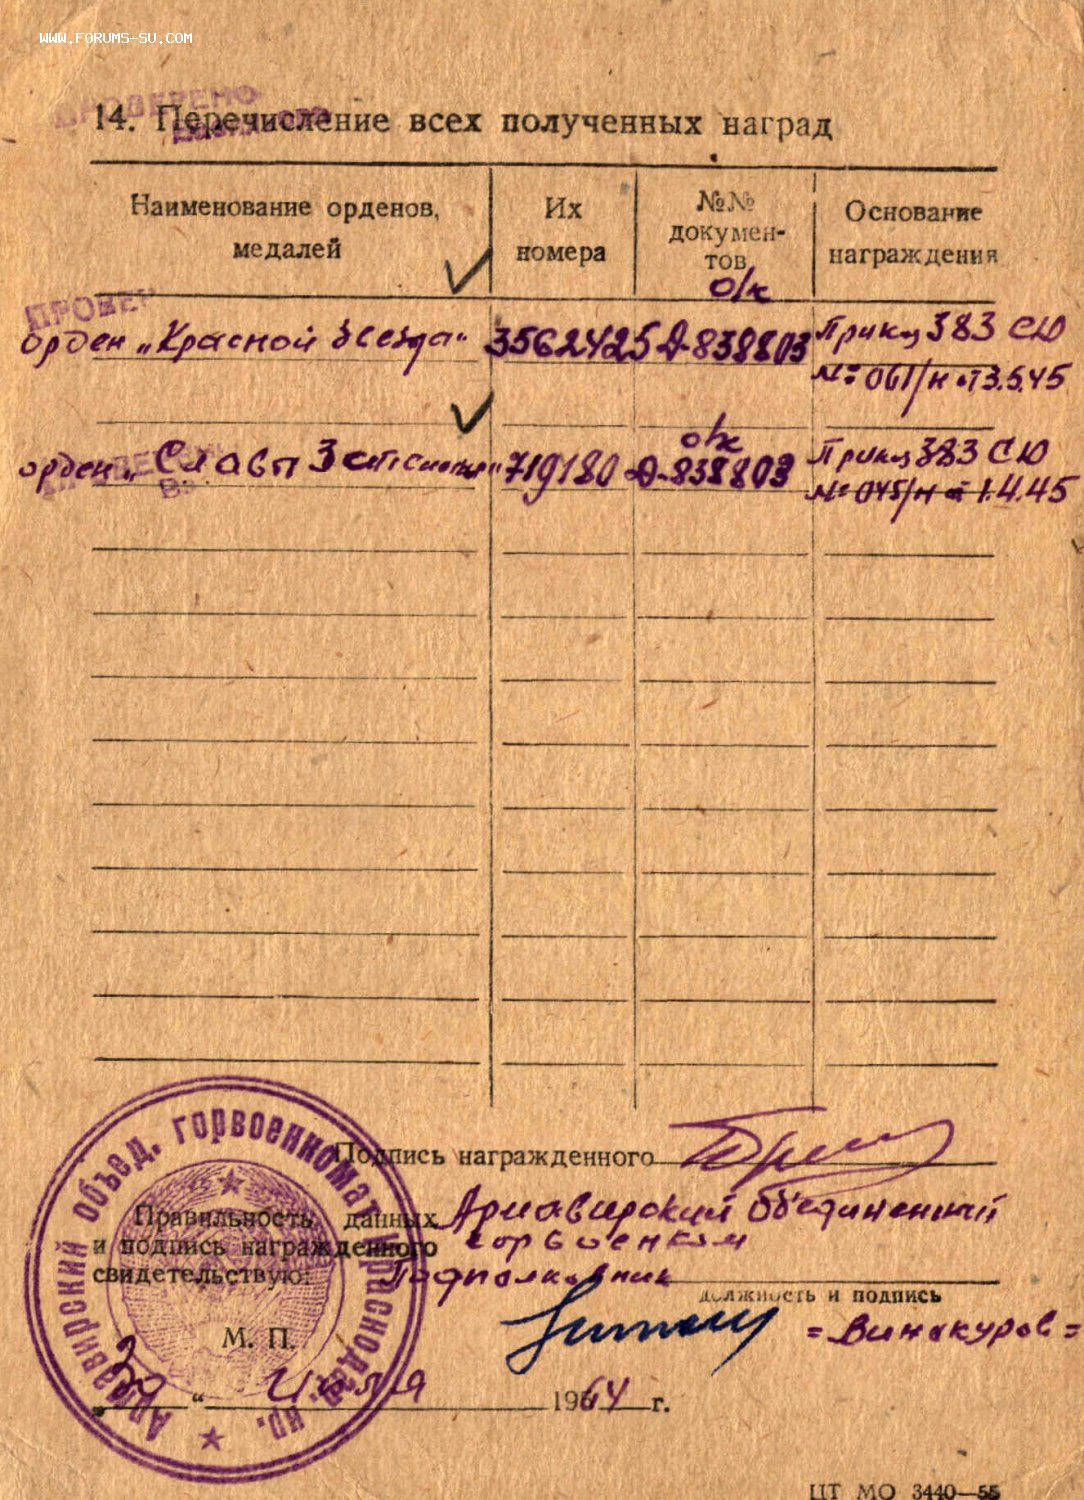 WWW.FORUMS-SU.COM
ПРОВЕРЕНО
14. Перечисление всех полученных наград
Наименование орденов, медалей
Их номера
№№ документов
Основание награждения
о/к
ПРОВЕР
орден „Красной Звезда" 3562425 Д-838803 Приказ 383 СД
№: 061/н от 3.5.45
о/к
орден „Славы 3 степени" 719180 Д-838803 Приказ 383 СД
№ 045/н от 1.4.45
Подпись награжденного
Правильность данных
и подпись награжденного
свидетельствую:
Армавирский объединенный
горвоенком
Подполковник
должность и подпись
=Винокуров=
М. П.
„30“ Июля 1964 г.
Армавирский объед. горвоенкомат Краснодар. кр.
ЦТ МО 3440—55